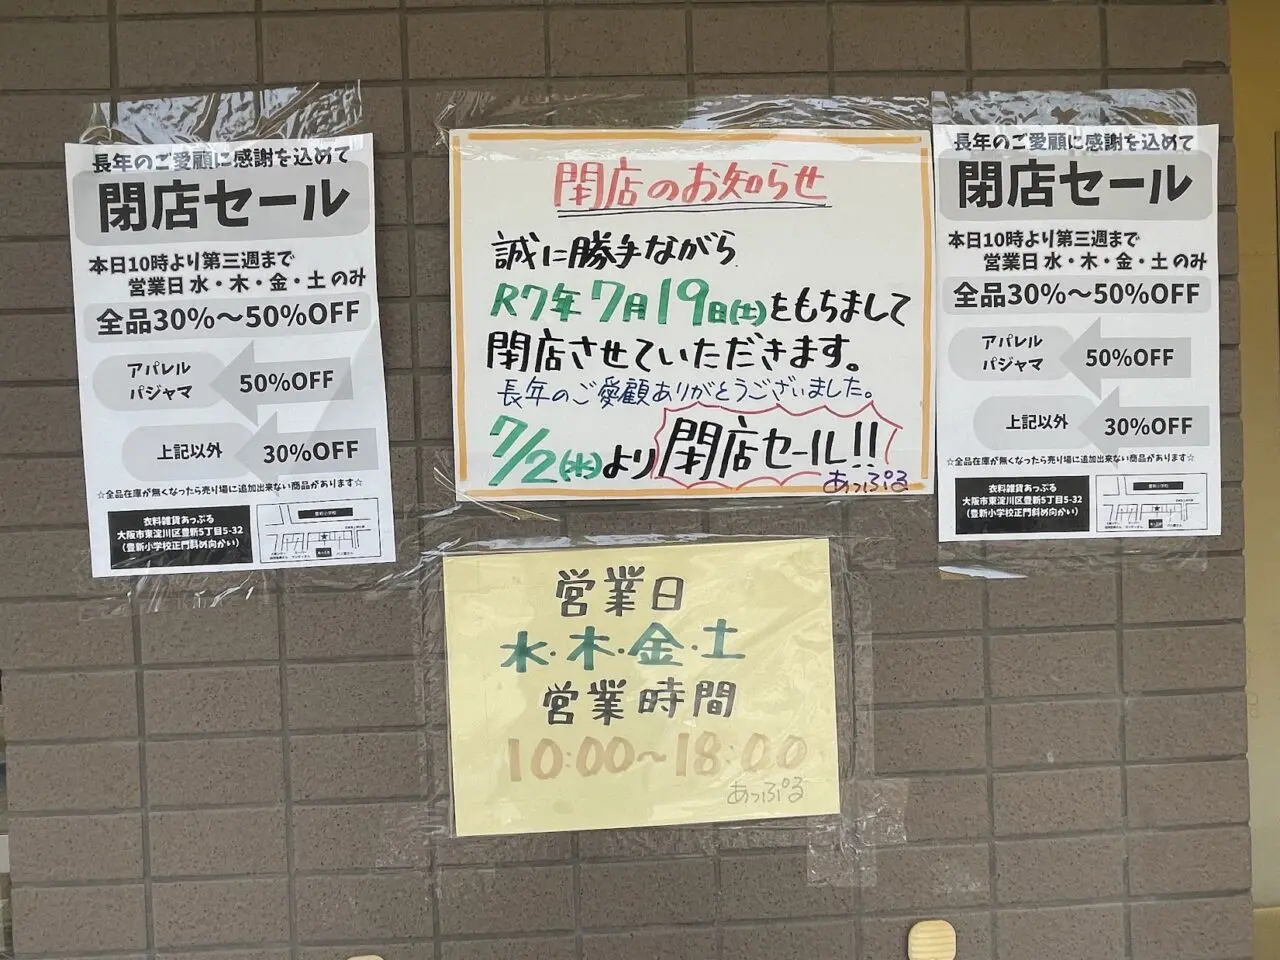 長年のご愛顧に感謝を込めて
閉店セール
本日10時より第三週まで
営業日 水・木・金・土 のみ
全品30%～50%OFF
アパレル
パジャマ
50%OFF
上記以外
30%OFF
☆全品在庫が無くなったら売り場に追加出来ない商品があります☆
衣料雑貨あっぷる
大阪市東淀川区豊新5丁目5-32
（豊新小学校正門斜め向かい）
豊新小学校
閉店のお知らせ
誠に勝手ながら
R7年7月19日(土)をもちまして
閉店させていただきます。
長年のご愛顧ありがとうございました。
7/2(水)より閉店セール!!
あっぷる
営業日
水・木・金・土
営業時間
10:00～18:00
あっぷる
長年のご愛顧に感謝を込めて
閉店セール
本日10時より第三週まで
営業日 水・木・金・土 のみ
全品30%～50%OFF
アパレル
パジャマ
50%OFF
上記以外
30%OFF
☆全品在庫が無くなったら売り場に追加出来ない商品があります☆
衣料雑貨あっぷる
大阪市東淀川区豊新5丁目5-32
（豊新小学校正門斜め向かい）
豊新小学校